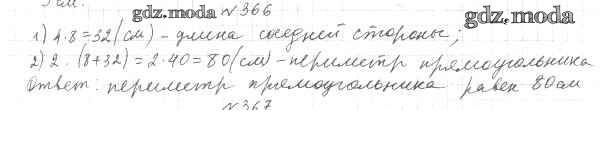 gdz.moda №366 gdz.moda
1) 4·8=32(см) – длина соседней стороны;
2) 2·(8+32)=2·40=80(см) – периметр прямоугольника
Ответ: периметр прямоугольника равен 80 см
№367